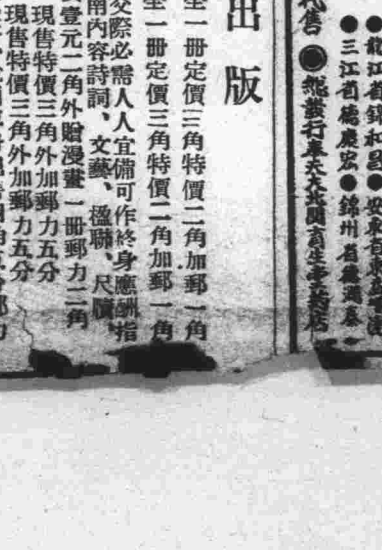 ●龍江省錦和昌●安東省東
●三江省德慶宏●錦州省
代售◉總發行奉天大北關育生堂藥店
出版
全一冊定價三角特價二角加郵一角
全一冊定價三角特價二角加郵一角
交際必需人人宜備可作終身應酬指
南內容詩詞、文藝、楹聯、尺牘、
壹元二角外贈漫畫一冊郵力二角
現售特價三角外加郵力五分
現售特價三角外加郵力五分